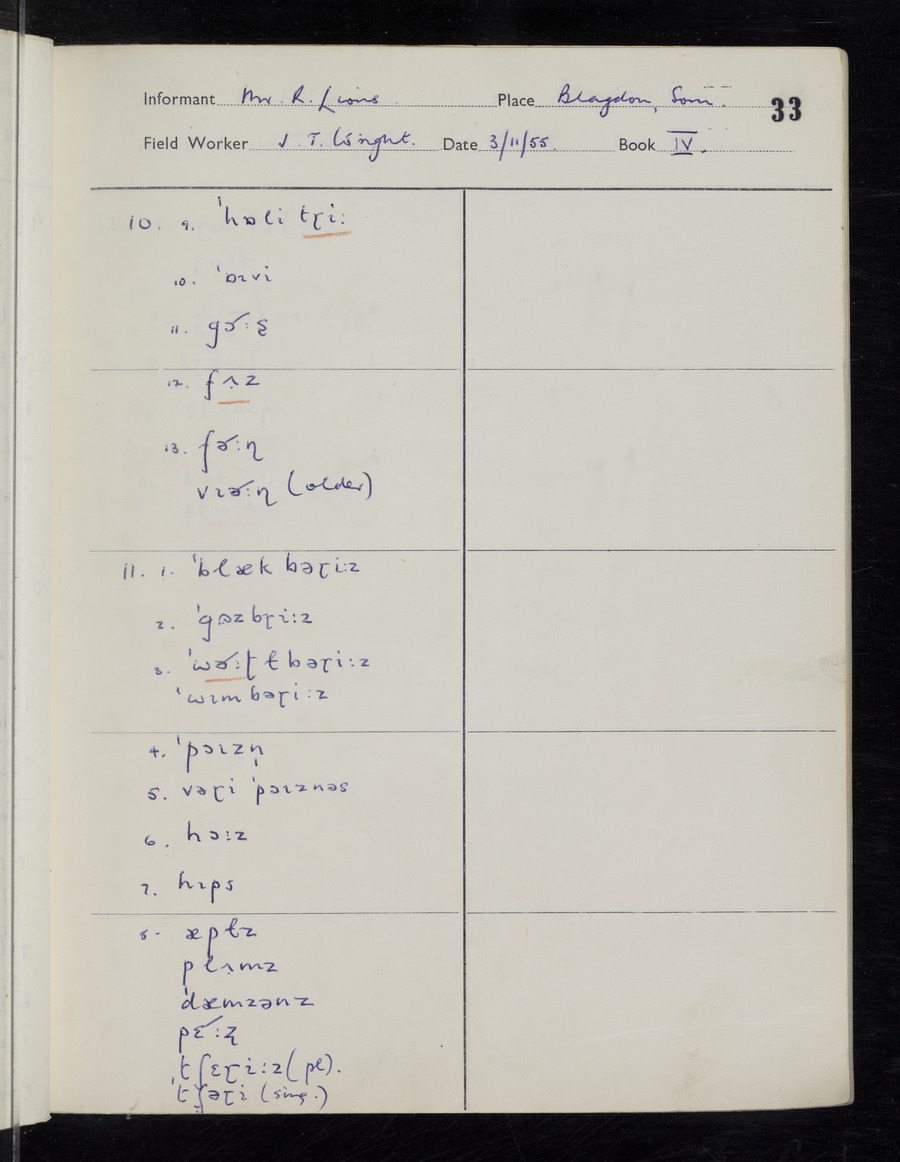 Informant Mr. R. Lions Place Blagdon, Som. 33
Field Worker J. T. Wright. Date 3/11/55. Book IV.
10. 9. ˈhɒli tɽiː
10. ˈɒɪvi
11. gɚːʂ
12. fʌz
13. fɚːɳ
vɪɚːɳ (older)
11. 1. ˈblæk bəɽiːz
2. ˈgɒzbɽiːz
3. ˈwɚːʈɫbəɽiːz
ˈwɪmbəɽiːz
4. ˈpɔɪzn̩
5. vəɽi ˈpɔɪznəs
6. hɔːz
7. hɪps
8. æpɫz
plʌmz
ˈdæmzənz
pɛ˞ːʐ
ˈtʃɛɽiːz (pl).
ˈtʃəɽi (sing.)